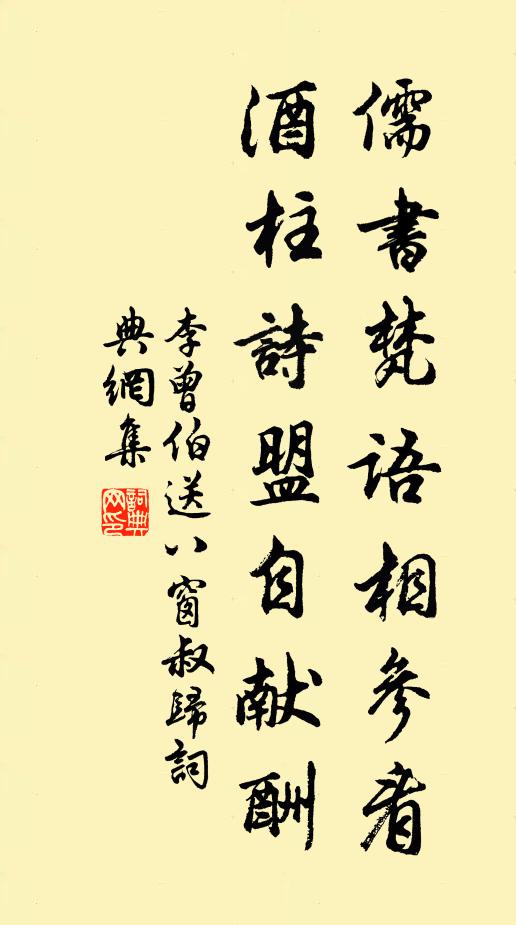 儒書梵語相參看
酒柱詩盟自献酬
李曾伯送八窗叔歸詞
典網集
詞典网印